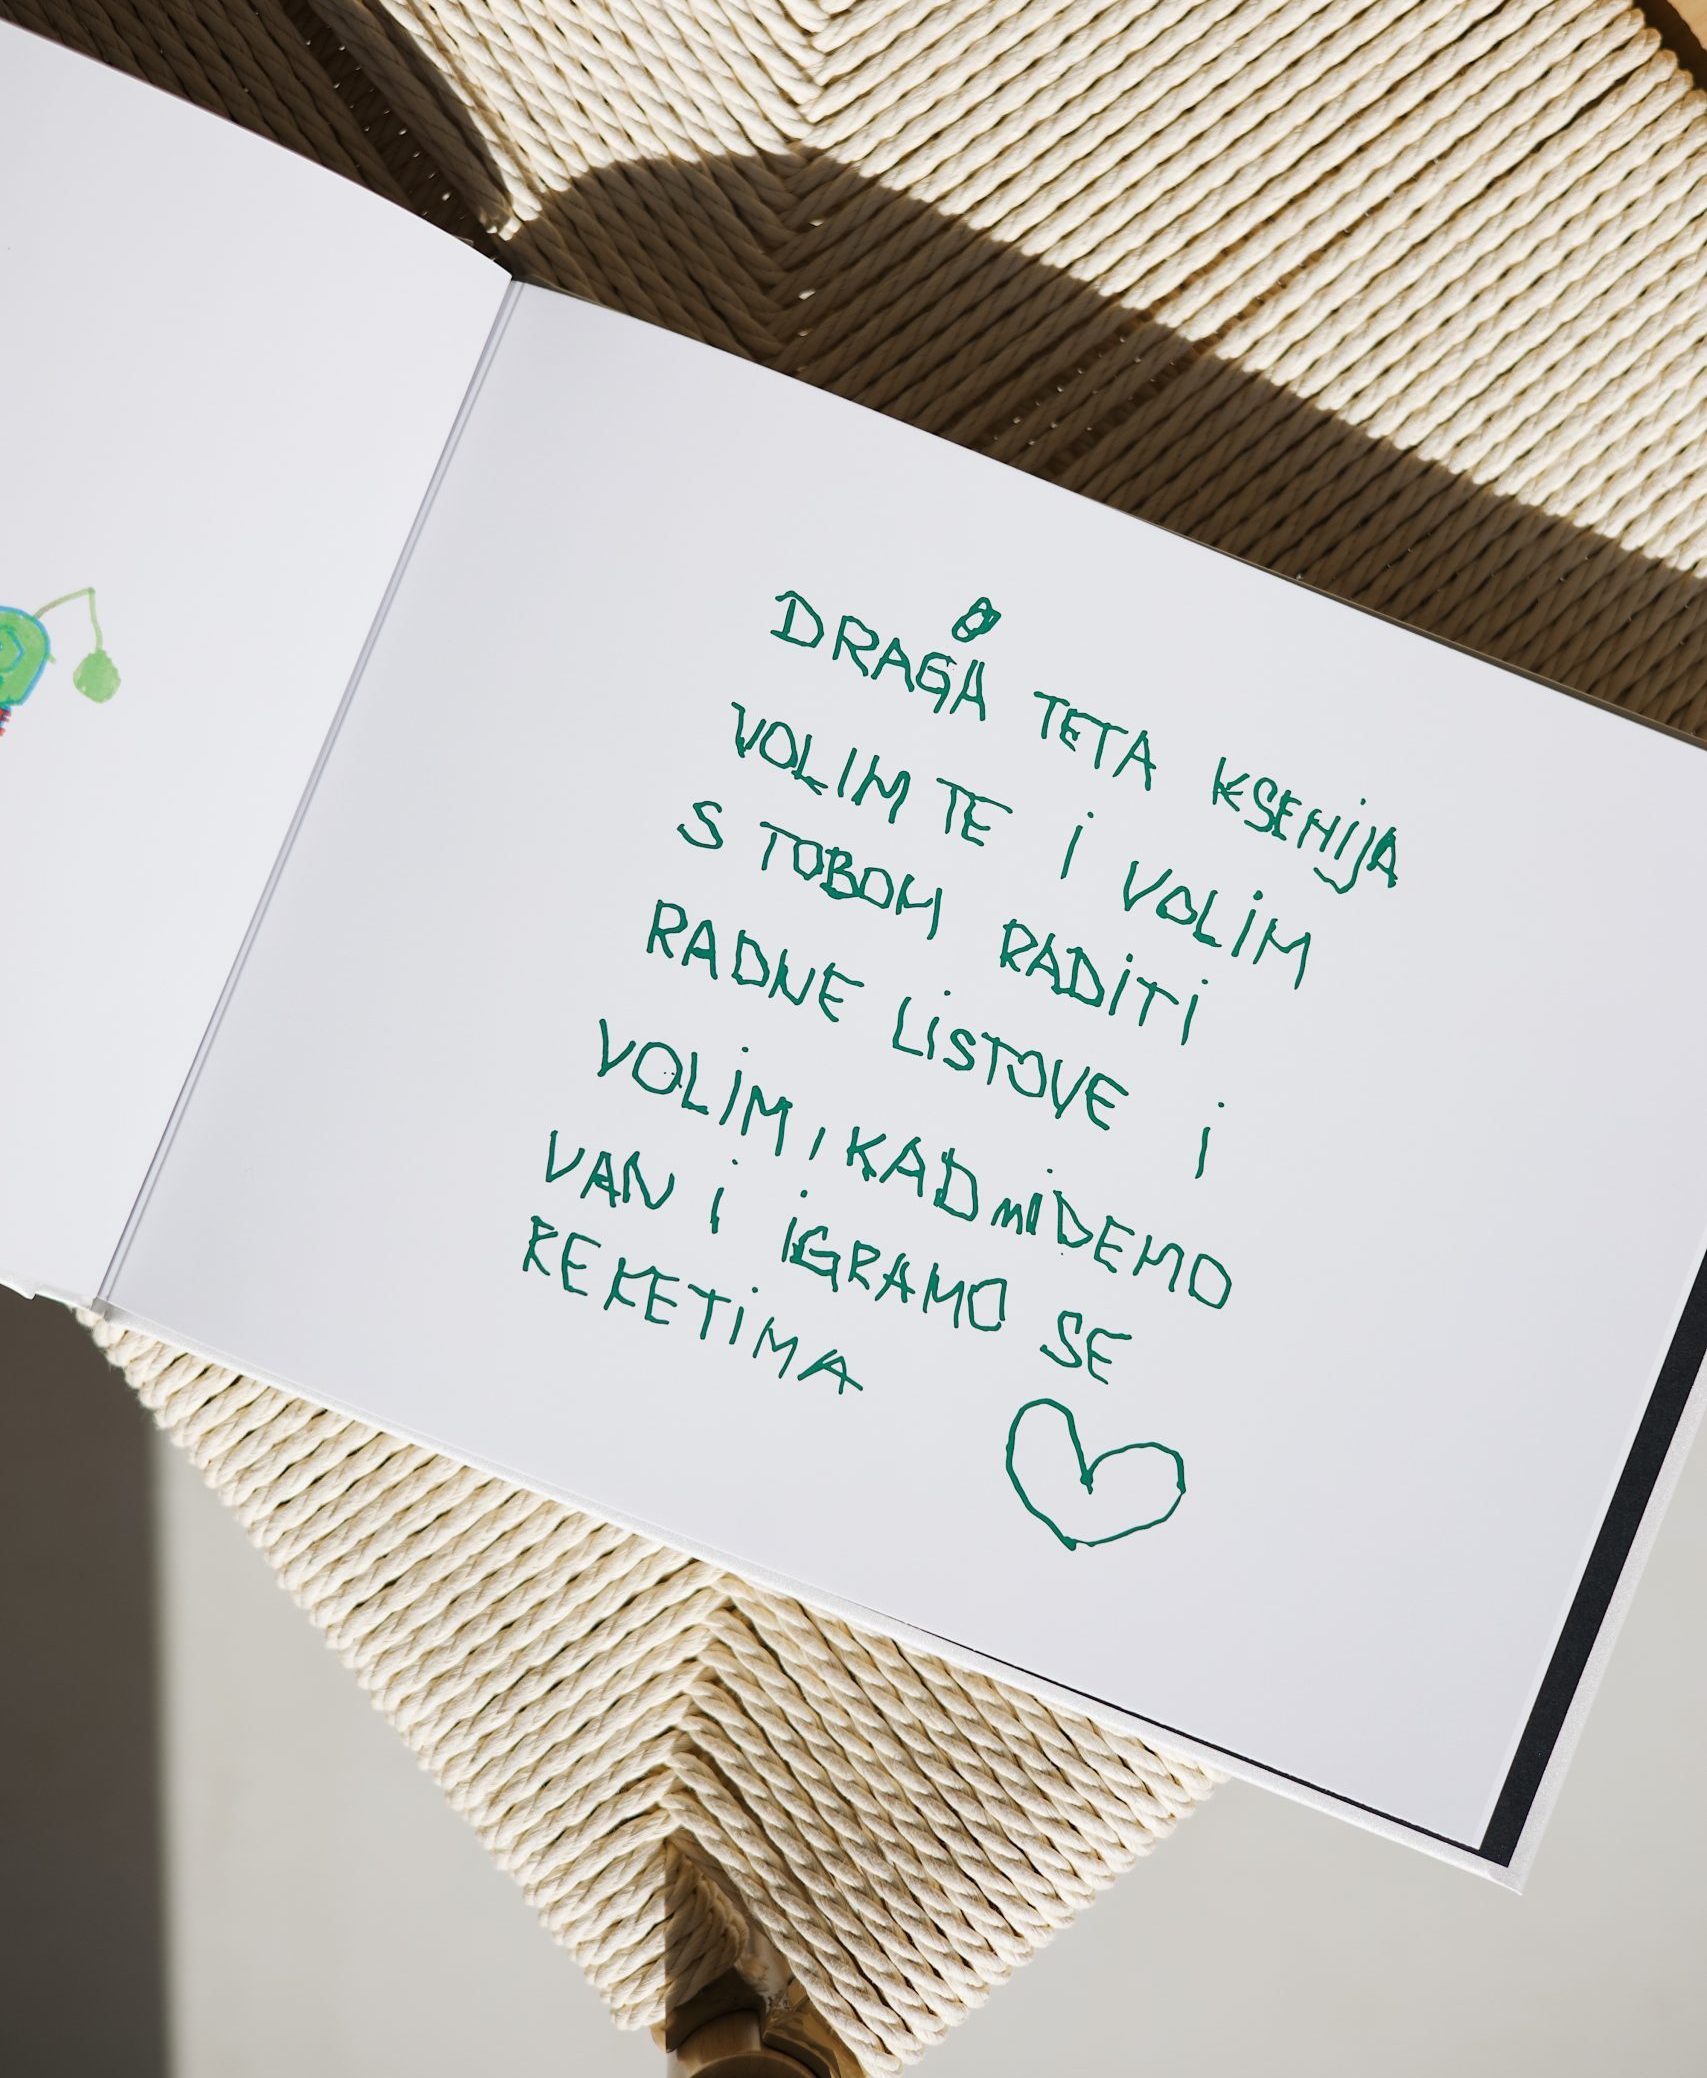 DRAGA TETA KSENIJA
VOLIM TE i VOLiM
S TOBOM RADiTi
RADNE LiSTOVE i
VOLiM, KAD MiDEMO
VAN i iGRAMO SE
REKETiMA